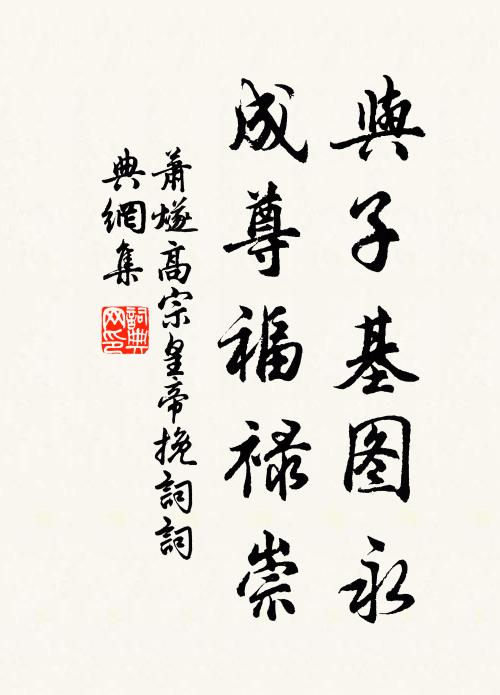 與子基图永
成尊福禄崇
蕭燧高宗皇帝挽詞詞
典網集
詞典网印